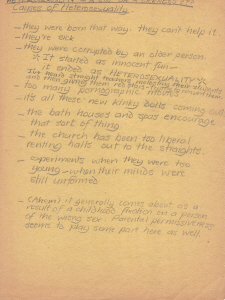 Causes of Heterosexuality
- they were born that way. they can't help it.
- they're sick
- they were corrupted by an older person
☆ It started as innocent fun —
it ended as HETEROSEXUALITY ☆
- too many pornographic
- its all these new kinky coming out
- the bath houses and spas encourage
that sort of thing.
- the church has been too liberal
renting halls out to the straights.
- experiments when they were too
young - when their minds were
still unformed
- (Ahem) it generally comes about as a
result of a childhood fixation on a person
of the wrong sex. Parental permissiveness
seems to play some part here as well.